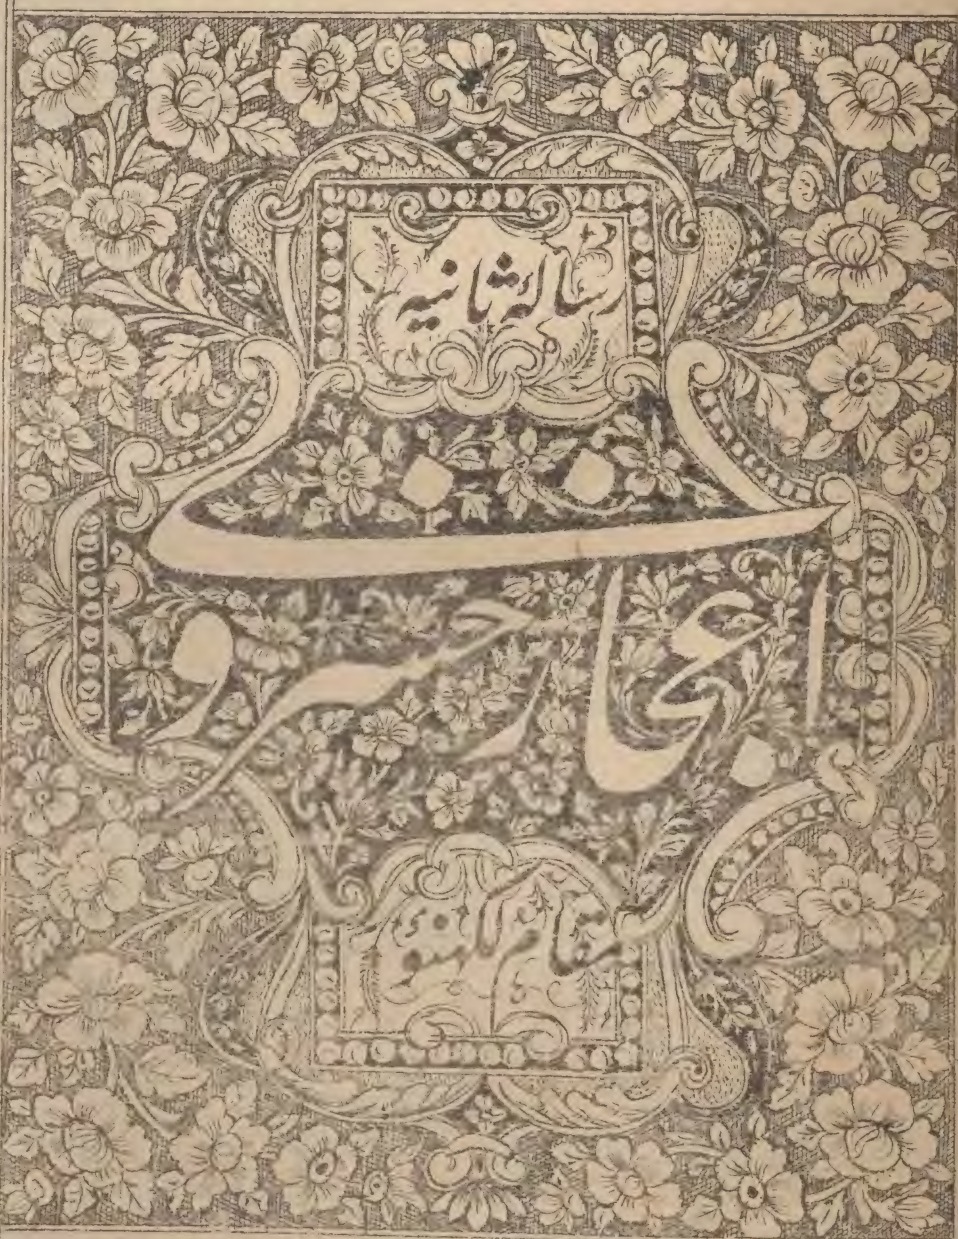 رساله ثانیه
اعجاز خسروی
بمقام لکهنو